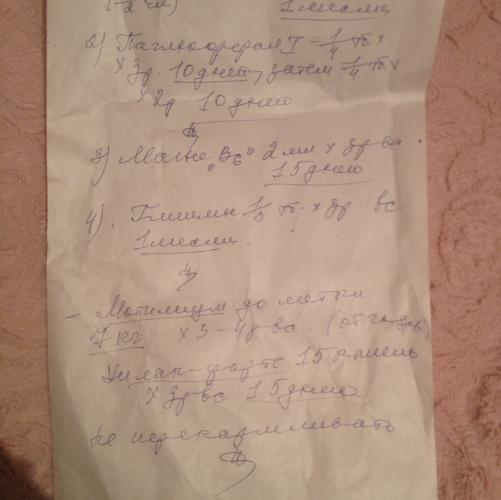 1 месяц
2) Паглюферал I – 1/4 т. x
x 3р. 10 дней, затем 1/4 т. x
x 2р. 10 дней
3) Магне „B6" 2 мл x 3р вд
15 дней
4). Глицин 1/3 т. x 3р. вс
1 месяц.
– Мотилиум до метки
7 кг x 3 – 4р вс. (от
Хилак-форте 15 капель
x 3р вс. 15 дней.
не перекармливать